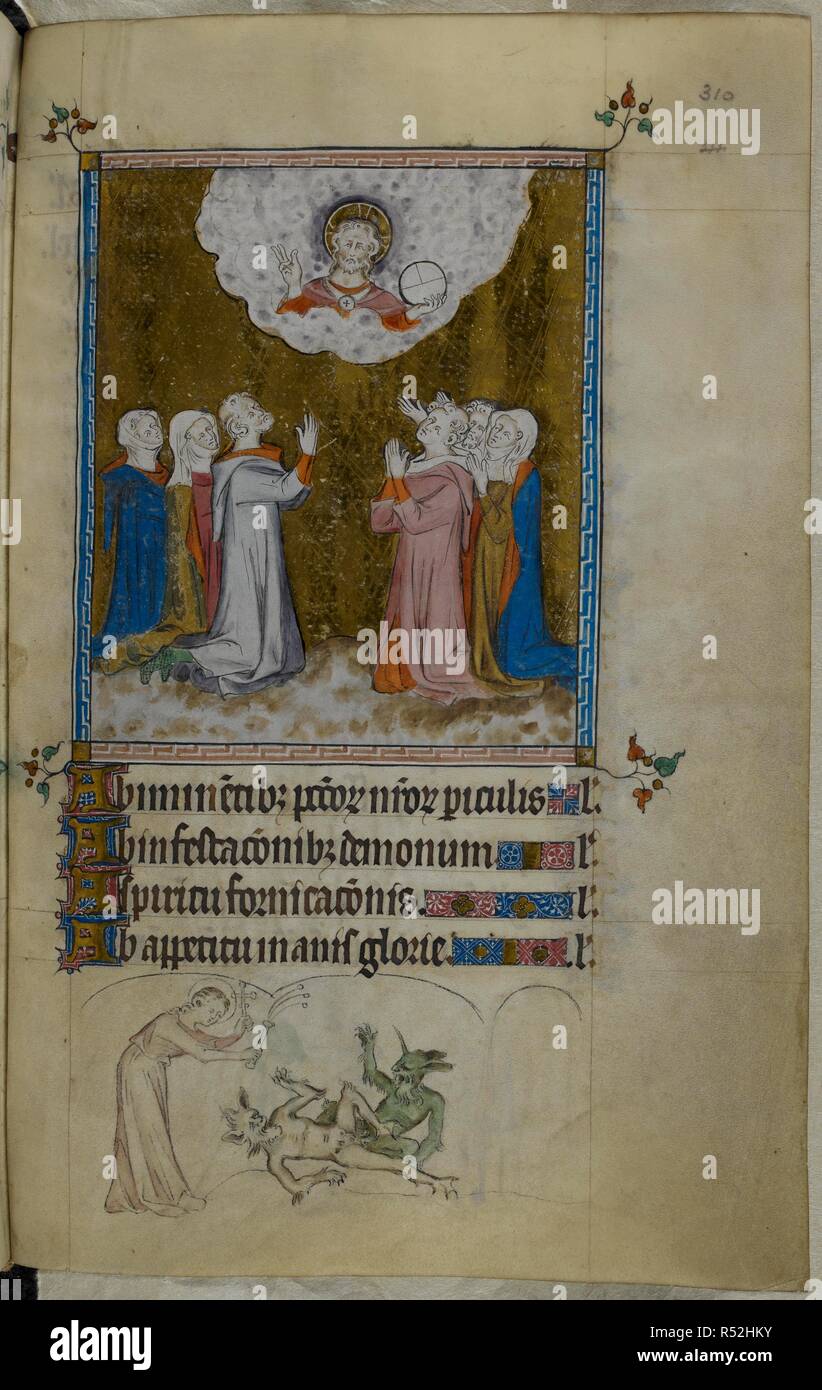 310
Ab iminētibȝ pctōꝝ nrōꝝ piculis l'.
Ab infestacōnibȝ demonum l'.
A spiritu fornicacōnis. l'.
Ab appetitu inanis glorie. l'.
a
alamy
alamy
Image ID: R52HKY
www.alamy.com